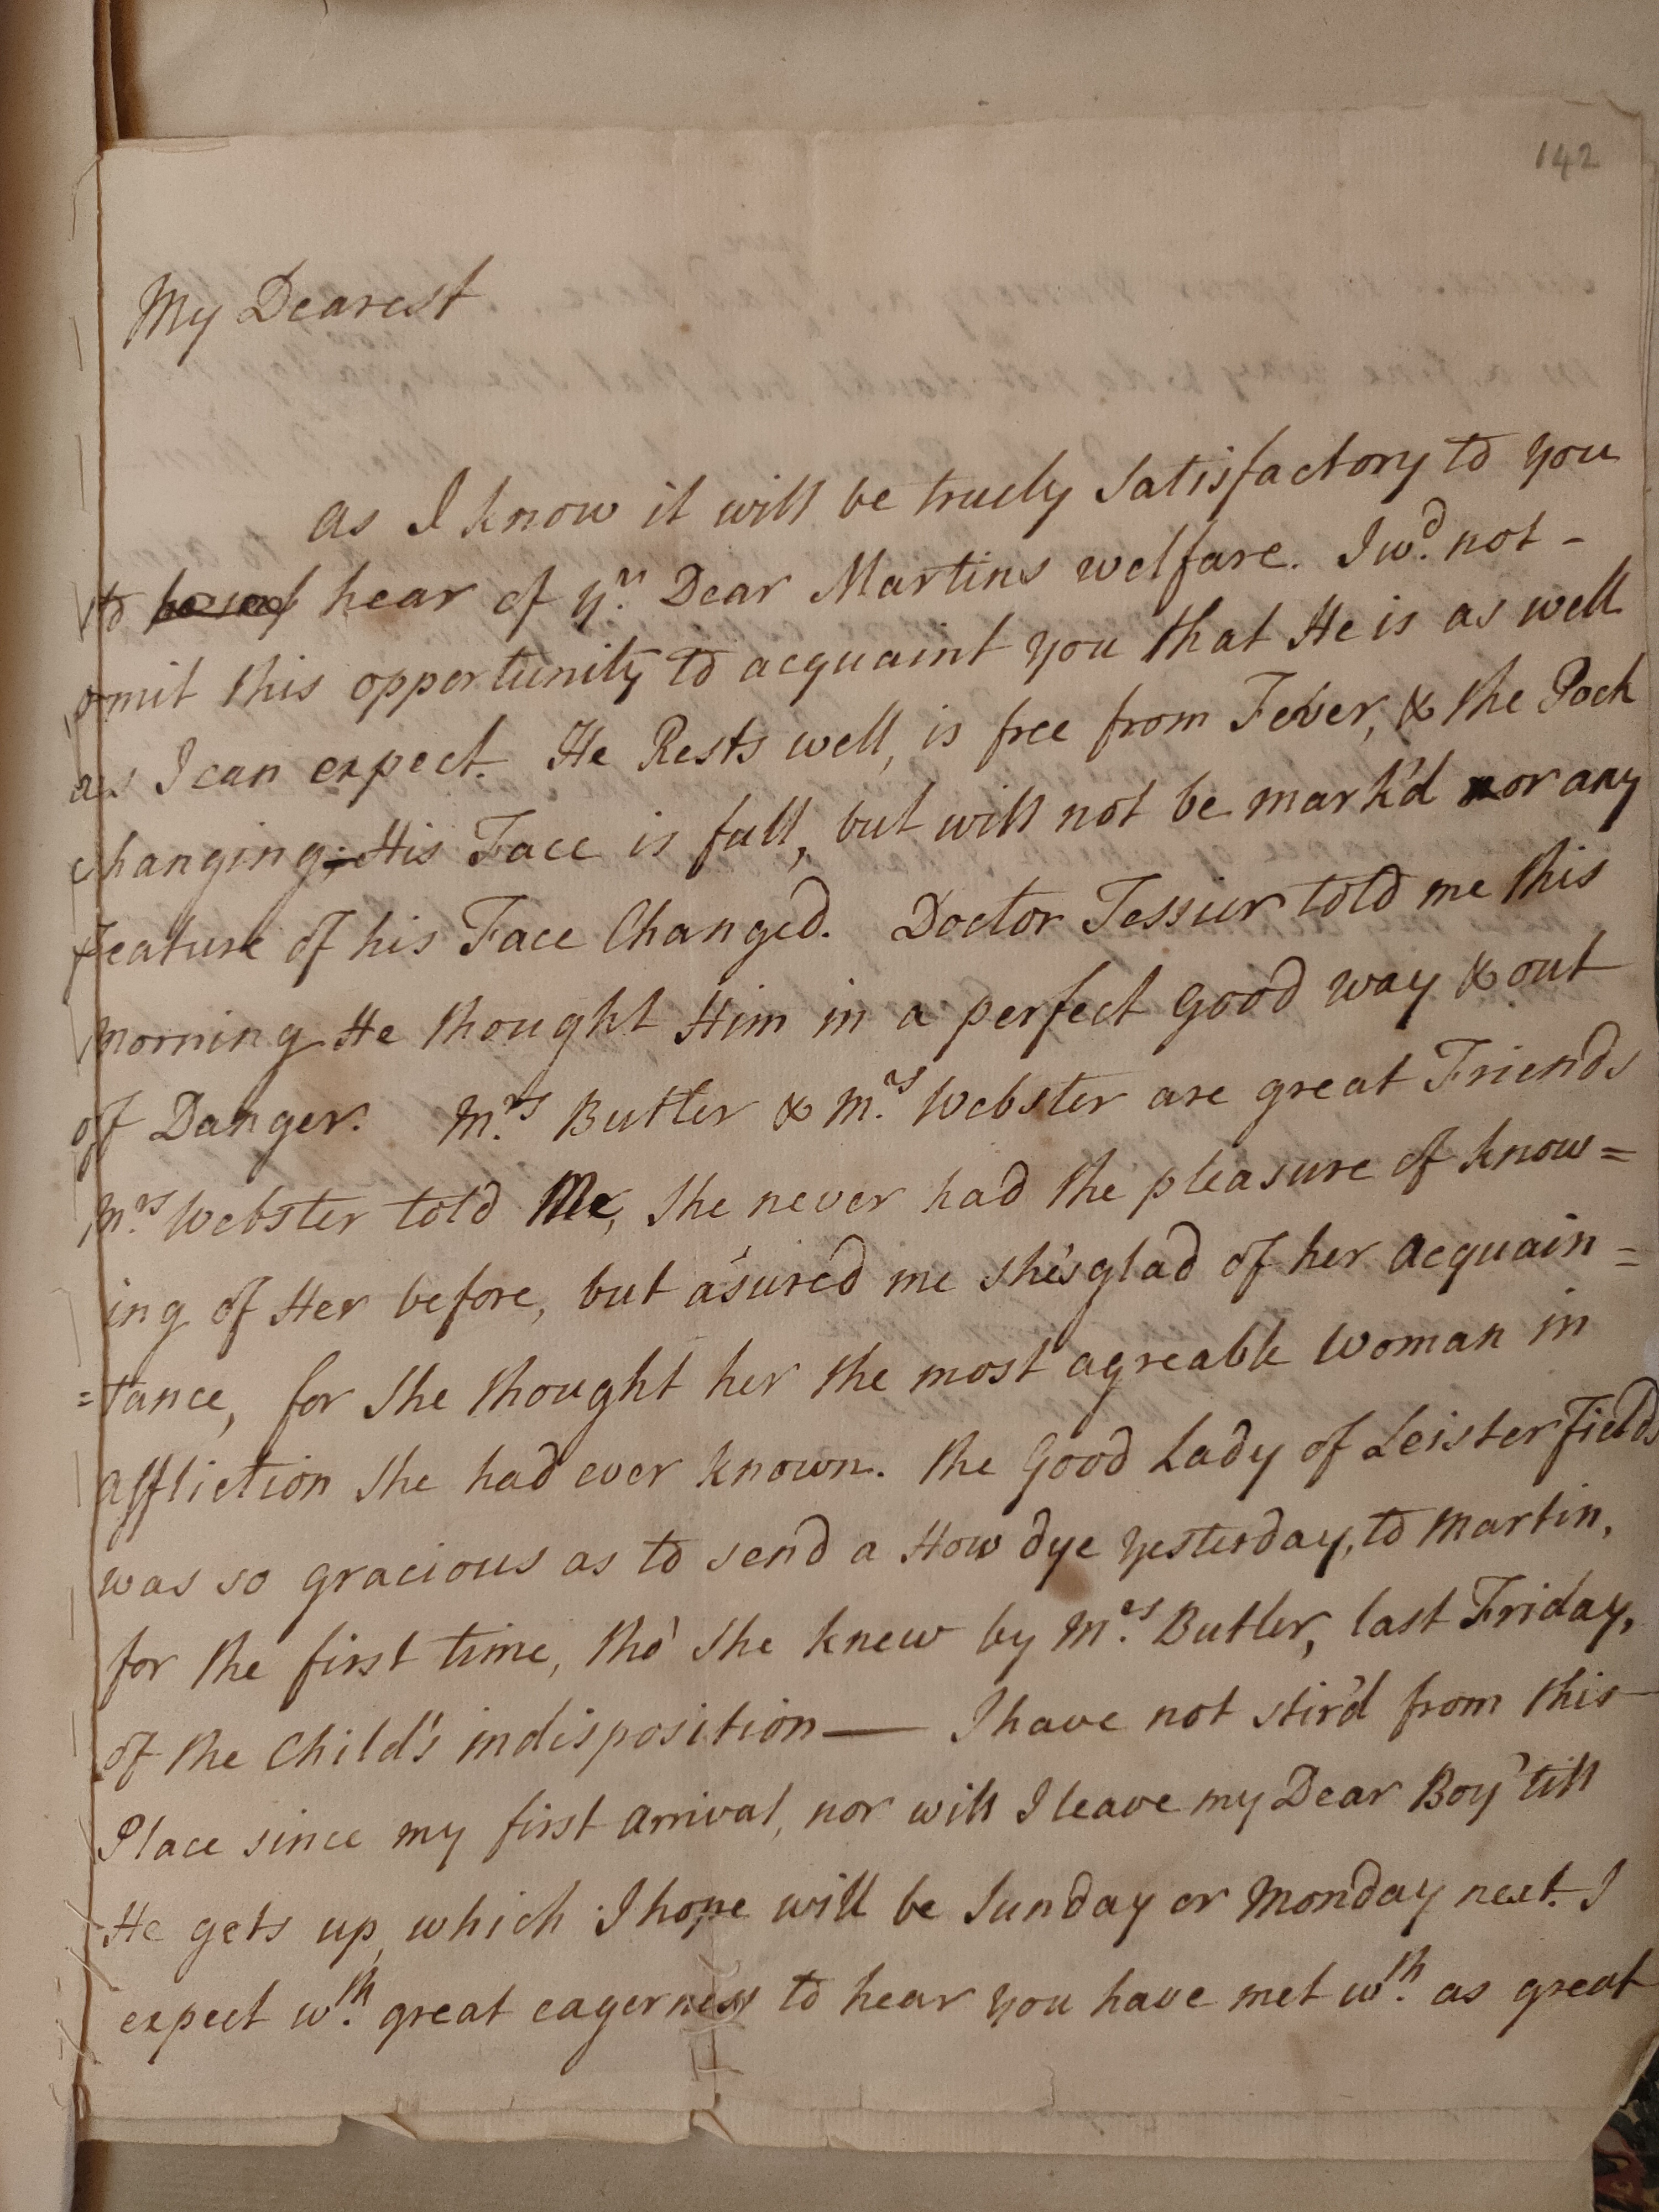 142
My Dearest
as I know it will be truely satisfactory to you
to hear of yr. Dear Martins welfare. I wd. not -
omit this opportunity to acquaint you that He is as well
as I can expect. He Rests well, is free from Fever, & the Pock
changing; His Face is full, but will not be mark'd nor any
Feature of his Face Changed. Doctor Tessier told me this
morning He thought Him in a perfect good way & out
of Danger. Mrs. Butler & Mrs. Webster are great Friends
Mrs. Webster told Me, She never had the pleasure of know=
ing of Her before, but asured me she's glad of her acquain=
=tance, for She thought her the most agreable Woman in
affliction She had ever known. the Good Lady of Leister Fields
was so gracious as to send a How dye yesterday, to Martin,
for the first time, tho' She knew by Mrs. Butler, last Friday,
of the Child's indisposition — I have not stir'd from this
Place since my first arrival, nor will I leave my Dear Boy 'till
He gets up, which I hope will be Sunday or Monday next. I
expect wth. great eagerness to hear you have met wth. as great